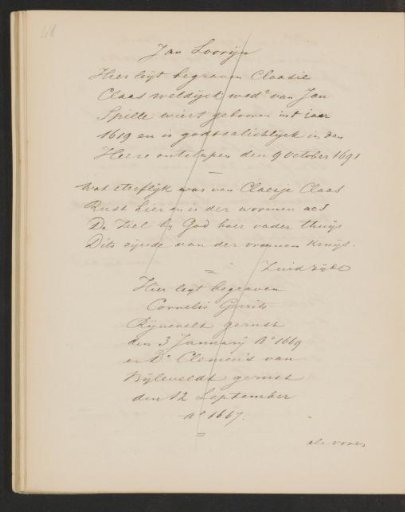 48
Jan Loorijn
Hier leijt begraven Claadie
Claas weldijck wed.e van Jan
Spelle wiert gebooren int jaer
1619 en is godtsalichlijck in den
Heere ontslapen den 9 October 1691
Wat sterflijk was van Claesje Claas
Rust hier in der wormen aes
De Ziel bij God haer vader thuijs
Dits eijnde van der vromen kruijs.
Zuid zijde
Hier leijt begraven
Cornelis Gerrits
Rijnevelt gerust
den 3 Januarij A° 1669
en D° Clemens van
Bijleveldt gerust
den 12 September
A° 1667.
als voren